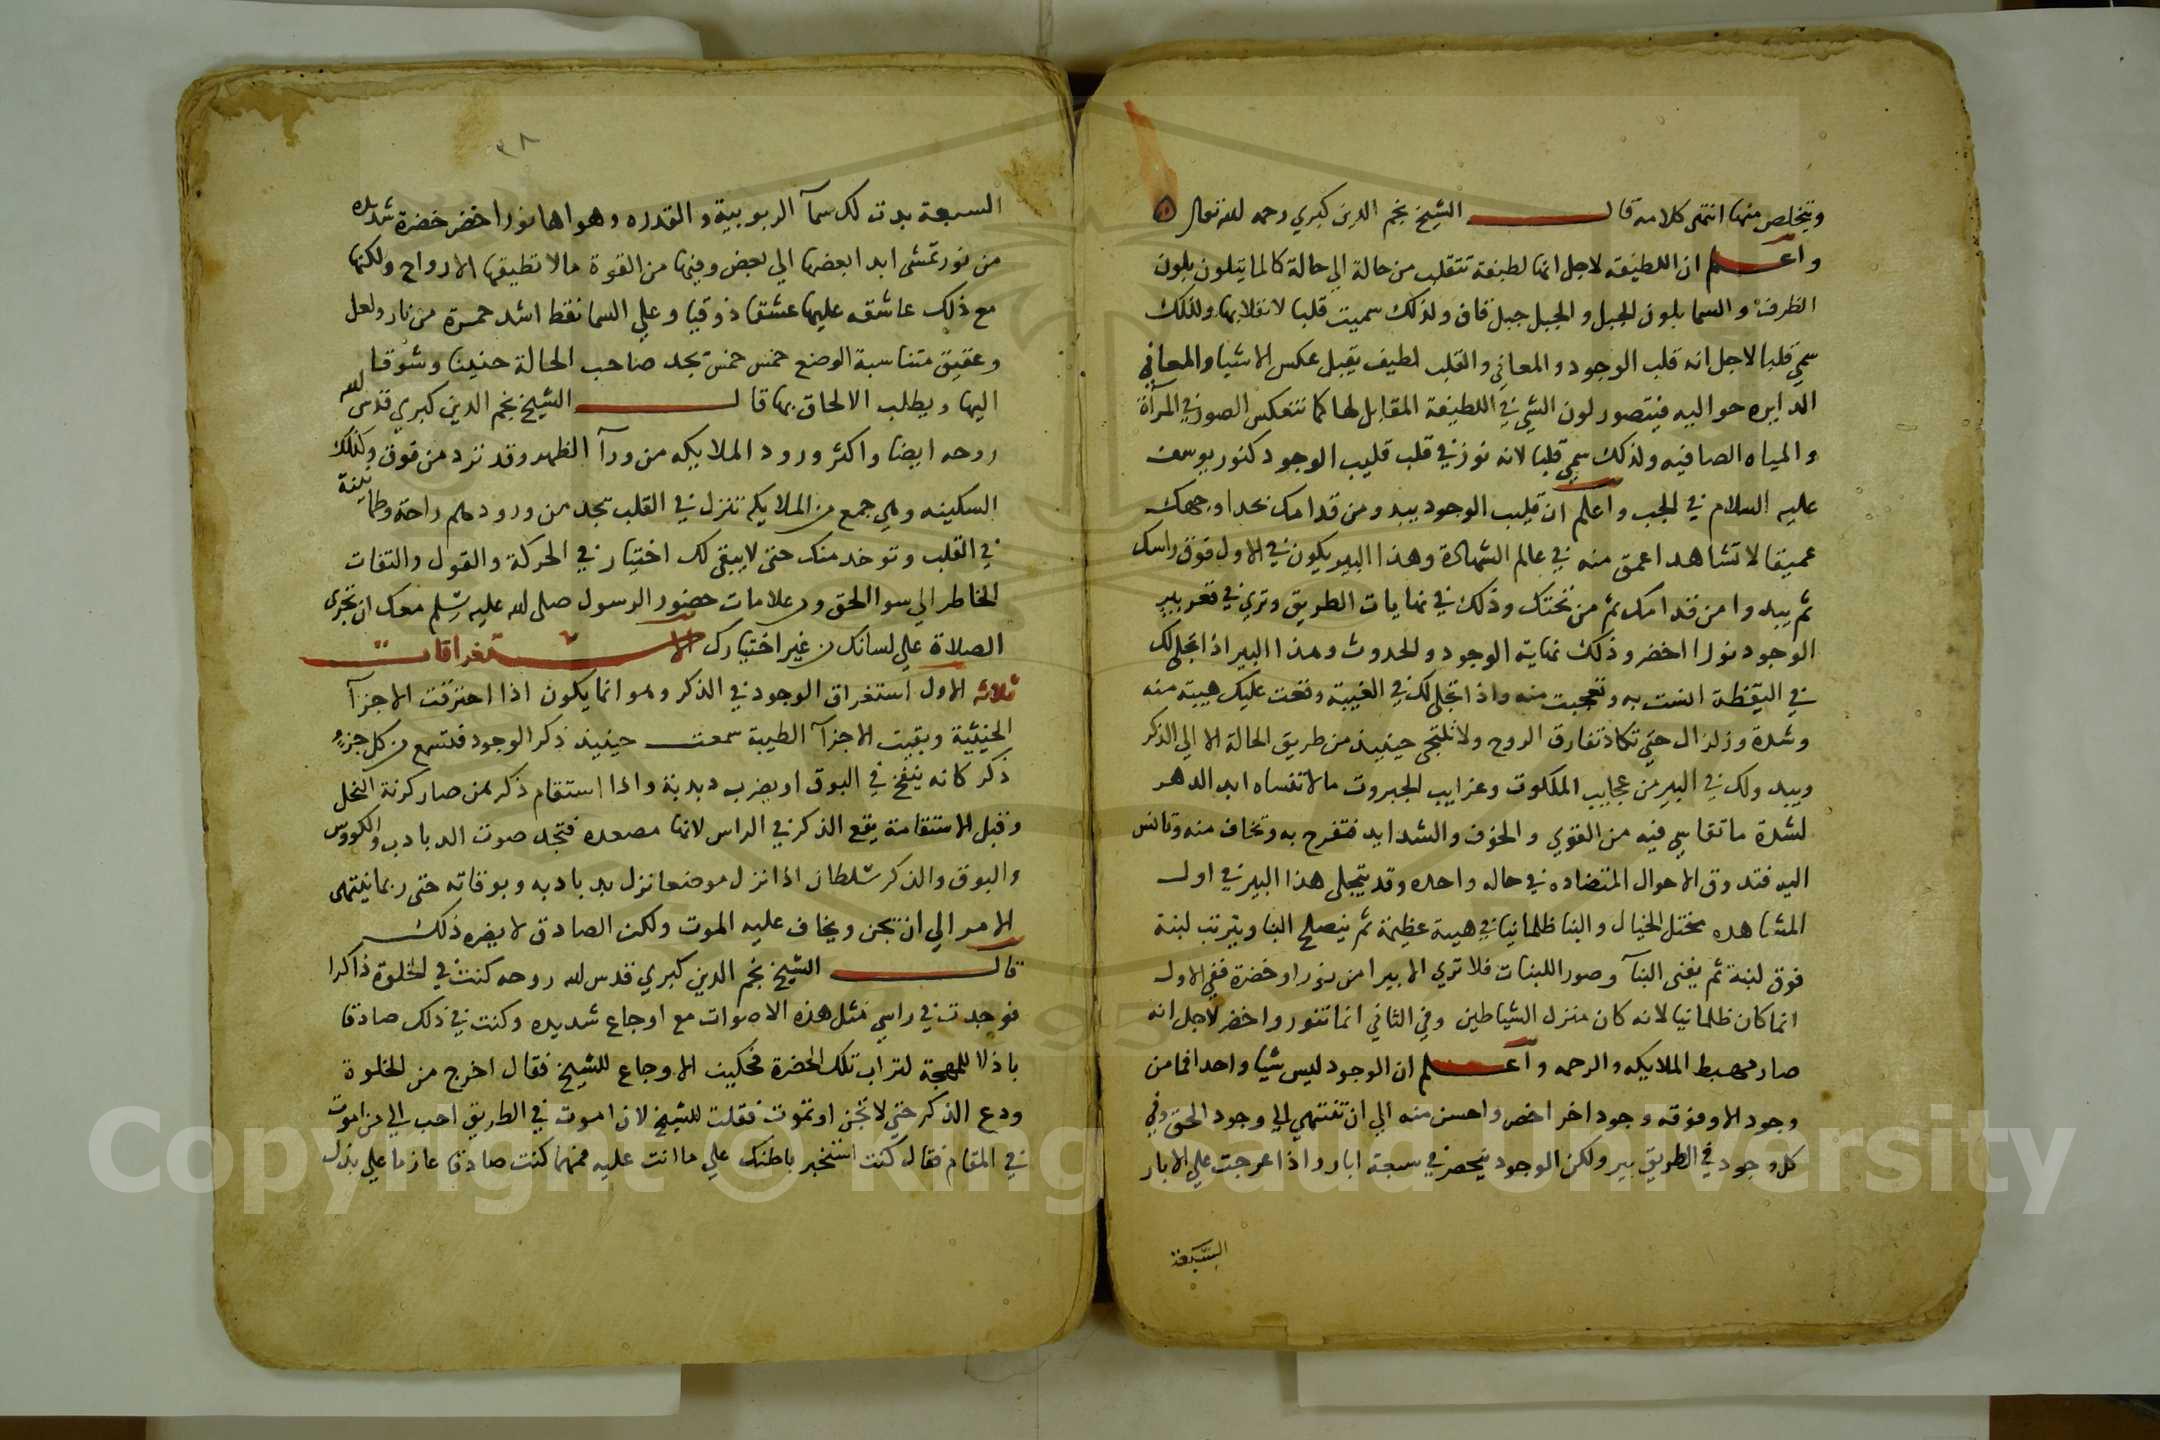 ويتخلص منها انتهى كلامه قال الشيخ نجم الدين كبري رحمه الله تعالى
واعلم ان اللطيفه لاجل انها لطيفة تتقلب من حالة الي حالة كالما يتلون بلون
الظرف والسما بلون الجبل والجبل جبل قاف ولذلك سميت قلبا لانقلابها وللذلك
سمي قلبا لاجل انه قلب الوجود والمعاني والقلب لطيف يقبل عكس الاشيا والمعاني
الدايره حواليه فيتصور لون الشي في اللطيفة المقابل لها كما تنعكس الصور في المرآة
والمياه الصافيه ولذلك سمي قلبا لانه نور في قلب قليب الوجود كنور يوسف
عليه السلام في الجب واعلم ان قليب الوجود يبدو من قدامك بحدا وجهك
عميقا لا تشاهد اعمق منه في عالم الشهادة وهذا البير يكون في الاول فوق راسك
ثم يبدوا من قدامك ثم من تحتك وذلك في نهايات الطريق وتري في قعر بير
الوجود نورا اخضر وذلك نهاية الوجود والحدوث وهذا البير اذا تجلى لك
في اليقظة انست به وتعجبت منه واذا تجلى لك في الغيبة وقعت عليك هيبة منه
وشدة وزلزال حتي تكاد تفارق الروح ولا تلتجى حينيذ من طريق الحالة الا الي الذكر
ويبدولك في البير من عجايب الملكوت وغرايب الجبروت مالا تنساه ابد الدهر
لشدة ما تقاسي فيه من القوي والخوف والشدايد فتفرح به وتخاف منه وتانس
اليه فتدوق الاحوال المتضاده في حاله واحده وقد يتجلى هذا البير في اول
المشاهده مختل الخيال والبنا ظلمانيا في هيبة عظيمة ثم ينصلح البنا ويترتب لبنة
فوق لبنة ثم يفنى البنآ وصور اللبنات فلا تري الا بيرا من نور او خضرة ففي الاول
انما كان ظلمانيا لانه كان منزل الشياطين وفي الثاني انما تنور واخضر لاجل انه
صار مهبط الملايكه والرحمه واعلم ان الوجود ليس شيا واحدا فما من
وجود الا وفوقه وجود اخر اخص واحسن منه الي ان تنتهي الي وجود الحق وفي
كل وجود في الطريق بير ولكن الوجود ينحصر في سبعة ابار واذا عرجت علي الابار
السبعة
٣٨
السبعة بدت لك سمآ الربوبية والقدره وهواها نور اخضر خضرة شديده
من نور تمشى ابدا بعضها الي بعض وفيها من القوة مالا تطيقها الارواح ولكنها
مع ذلك عاشقه عليها عشقا ذوقيا وعلي السما نقط اشد حمرة من نار ولعل
وعقيق متناسبة الوضع خمس خمس تجد صاحب الحالة حنينا وشوقا
اليها ويطلب الالحاق بها قال الشيخ نجم الدين كبري قدس لله
روحه ايضا واكثر ورود الملايكه من ورآ الظهر وقد نزد من فوق وكذلك
السكينه وهي جمع من الملايكه تنزل في القلب تجد من ورودهم راحة وطمانينة
في القلب وتوخد منك حتى لا يبقى لك اختيار في الحركة والقول والتفات
الخاطر الي سوا الحق ومن علامات حضور الرسول صلى لله عليه وسلم معك ان تجري
الصلاة علي لسانك من غير اختيارك الاستغراقات
ثلاثه الاول استغراق الوجود في الذكر وهو انما يكون اذا احترقت الاجزآ
الخبيثية وبقيت الاجزآ الطيبة سمعت حينيذ ذكر الوجود فتسمع من كل جزء
ذكر كانه ينفخ في البوق او يضرب دبدبة واذا استقام ذكرهن صار كرنة النحل
وقبل الاستقامة يقع الذكر في الراس لانها مصعده فتجد صوت الدبادب والكووس
والبوق والذكر سلطان اذا نزل موضعا نزل بدبادبه وبوقاته حتى ربما ينتهى
الامر الي ان تجن ويخاف عليه الموت ولكن الصادق لا يضره ذلك
قال الشيخ نجم الدين كبري قدس لله روحه كنت في الخلوة ذاكرا
فوجدت في راسي مثل هذه الاصوات مع اوجاع شديده وكنت في ذلك صادقا
باذلا للمهجة لتراب تلك الحضرة فحكيت الاوجاع للشيخ فقال اخرج من الخلوة
ودع الذكر حتي لا تجن او تموت فقلت للشيخ لان اموت في الطريق احب الي من اموت
في المقام فقال كنت استخبر باطنك علي ما انت عليه فمهما كنت صادقا عازما علي بذل
Copyright © King Saud University